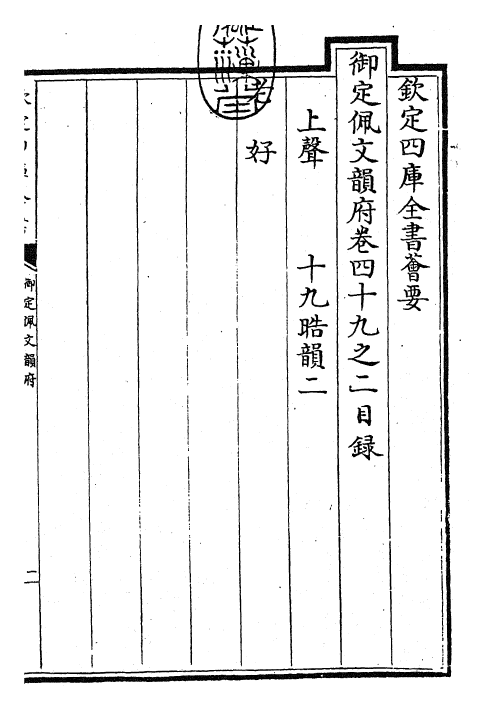 欽定四庫全書薈要
御定佩文韻府卷四十九之二目録
上聲　十九晧韻二
老
好
御定佩文韻府
二